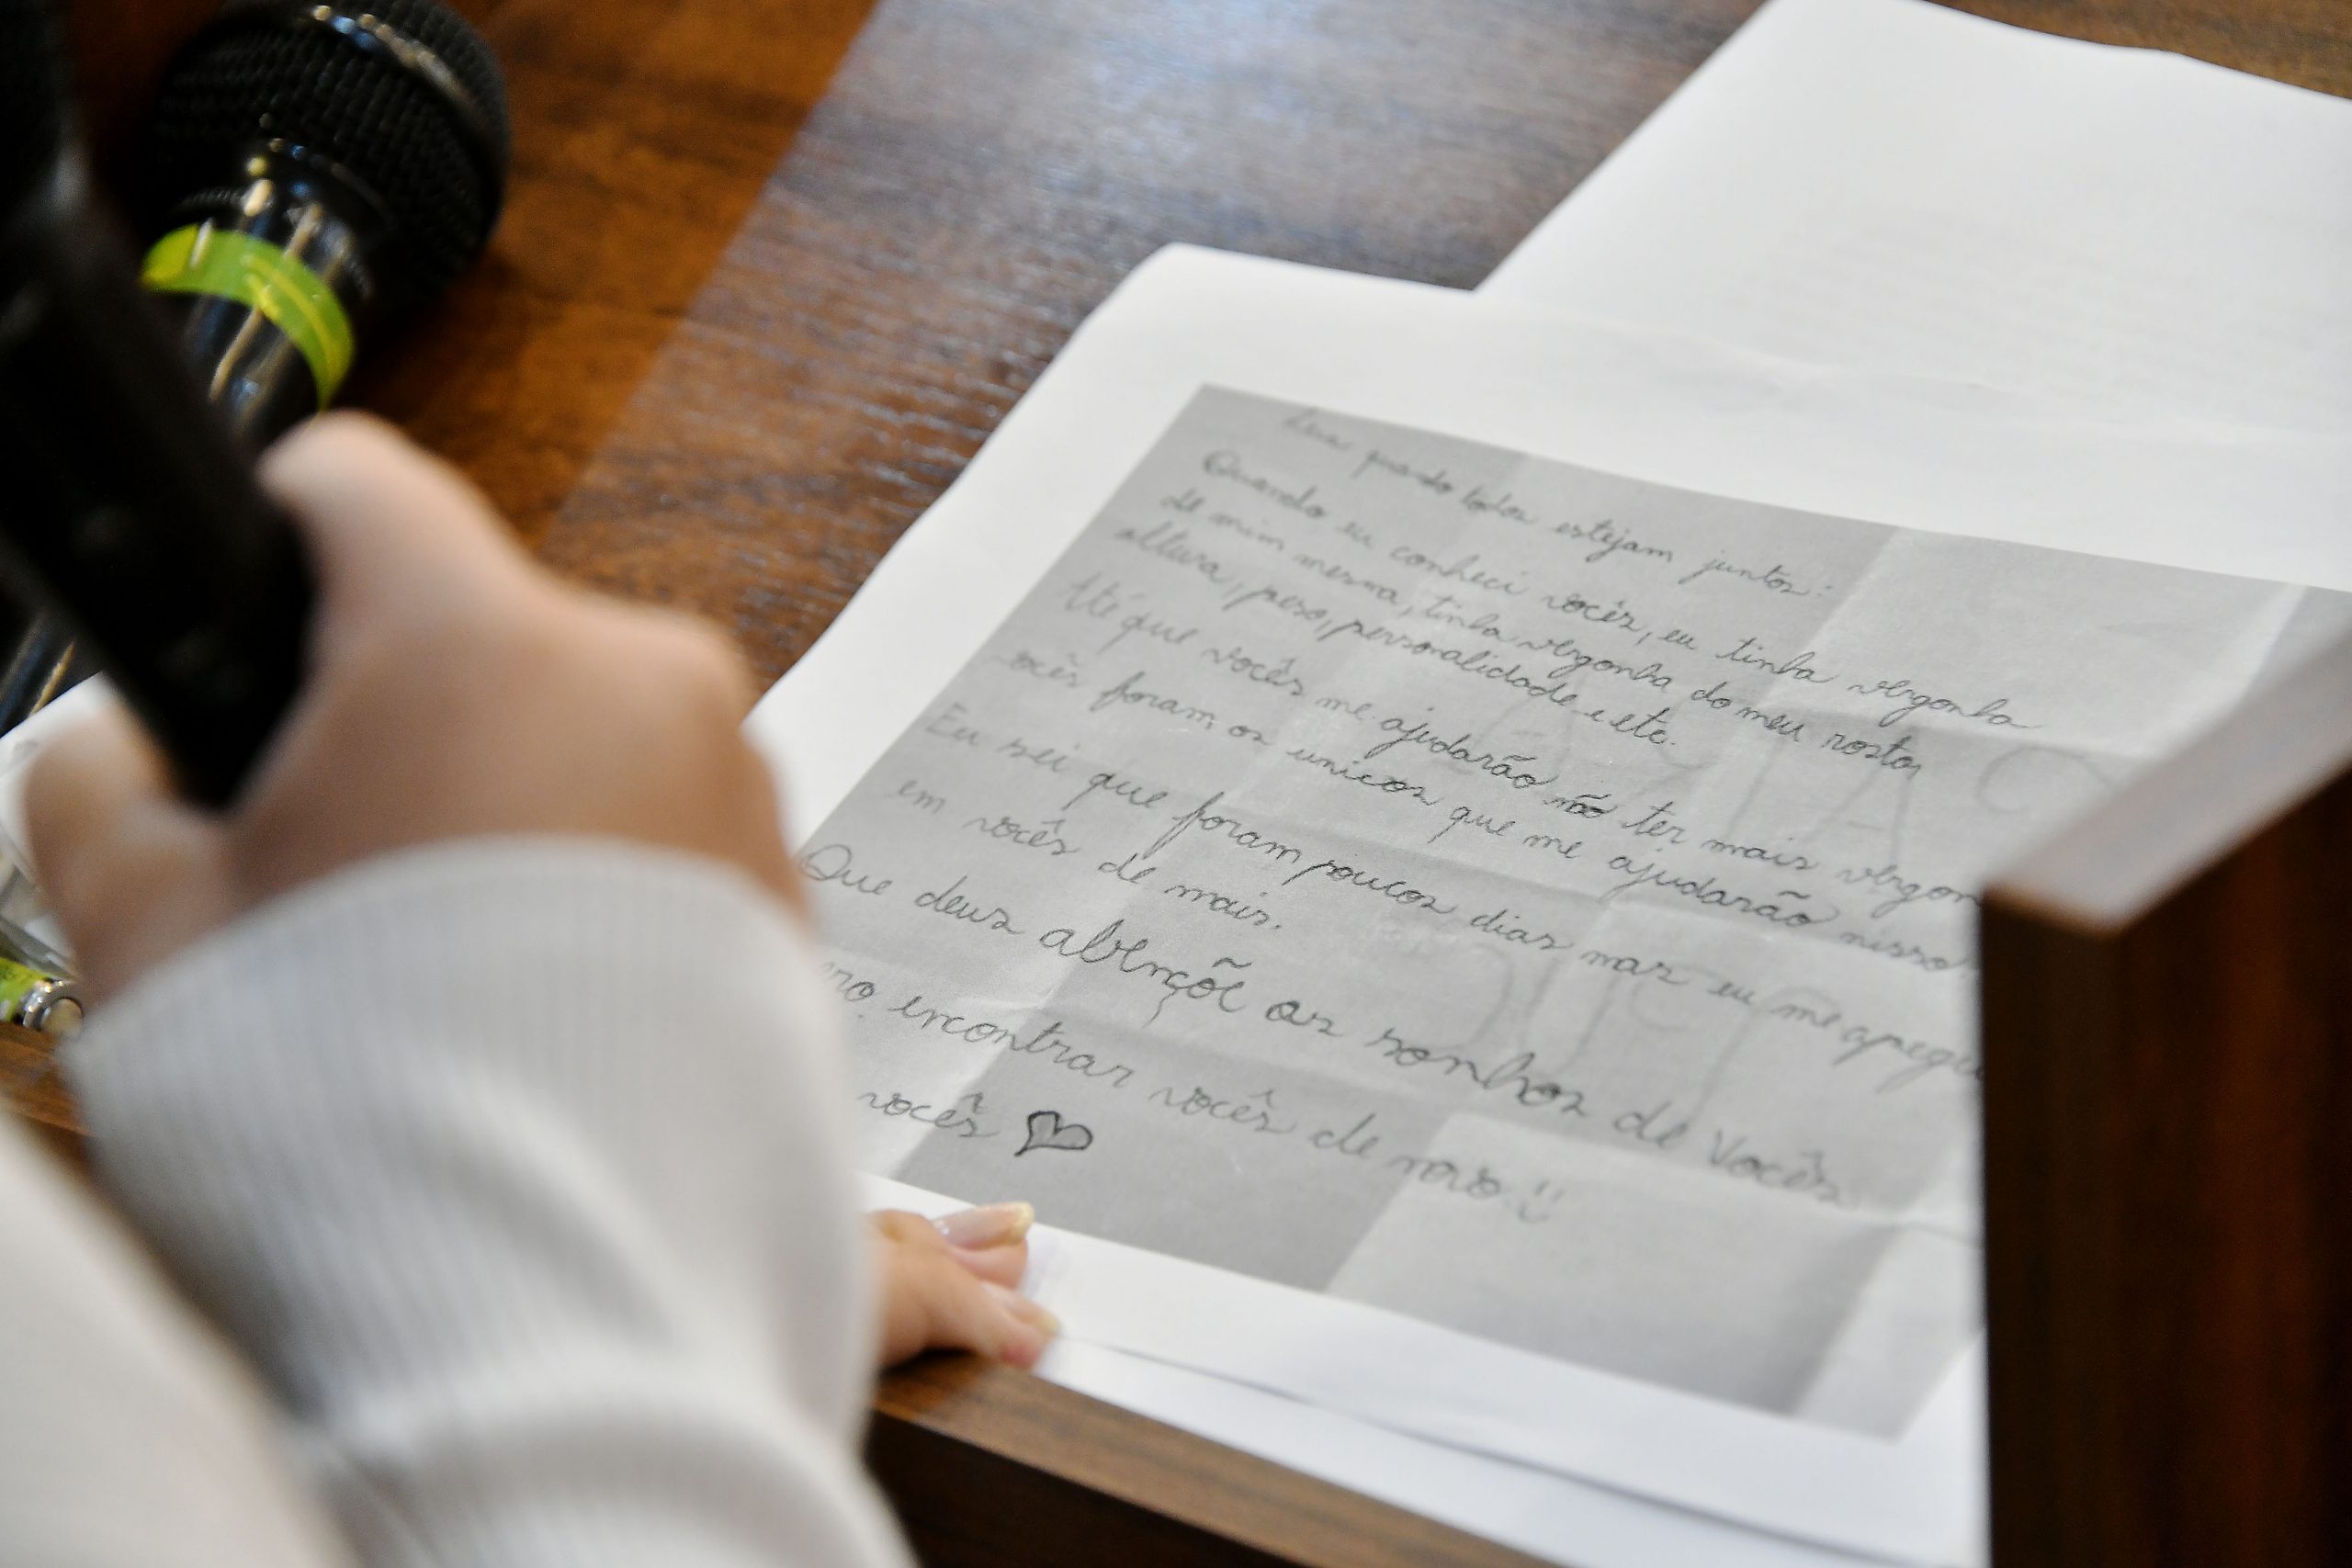 Leia quando todos estejam juntos:
Quando eu conheci vocês, eu tinha vergonha
de mim mesma, tinha vergonha do meu rosto,
altura, peso, personalidade e etc.
Até que vocês me ajudarão não ter mais vergon
ocês foram os unicos que me ajudarão nisso
Eu sei que foram poucos dias mas eu me apegu
em vocês de mais.
Que deus abençõe os sonhos de vocês
ero encontrar vocês de novo :)
vocês ♡